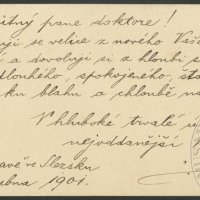 itný pane doktore!
uji se velice z nového Vaše
í a dovoluji si z hloubi s
dlouhého, spokojeného, šťa
ku blahu a chloubě na
V hluboké trvalé ú
nejoddanější
avě ve Slezsku
ubna 1901.